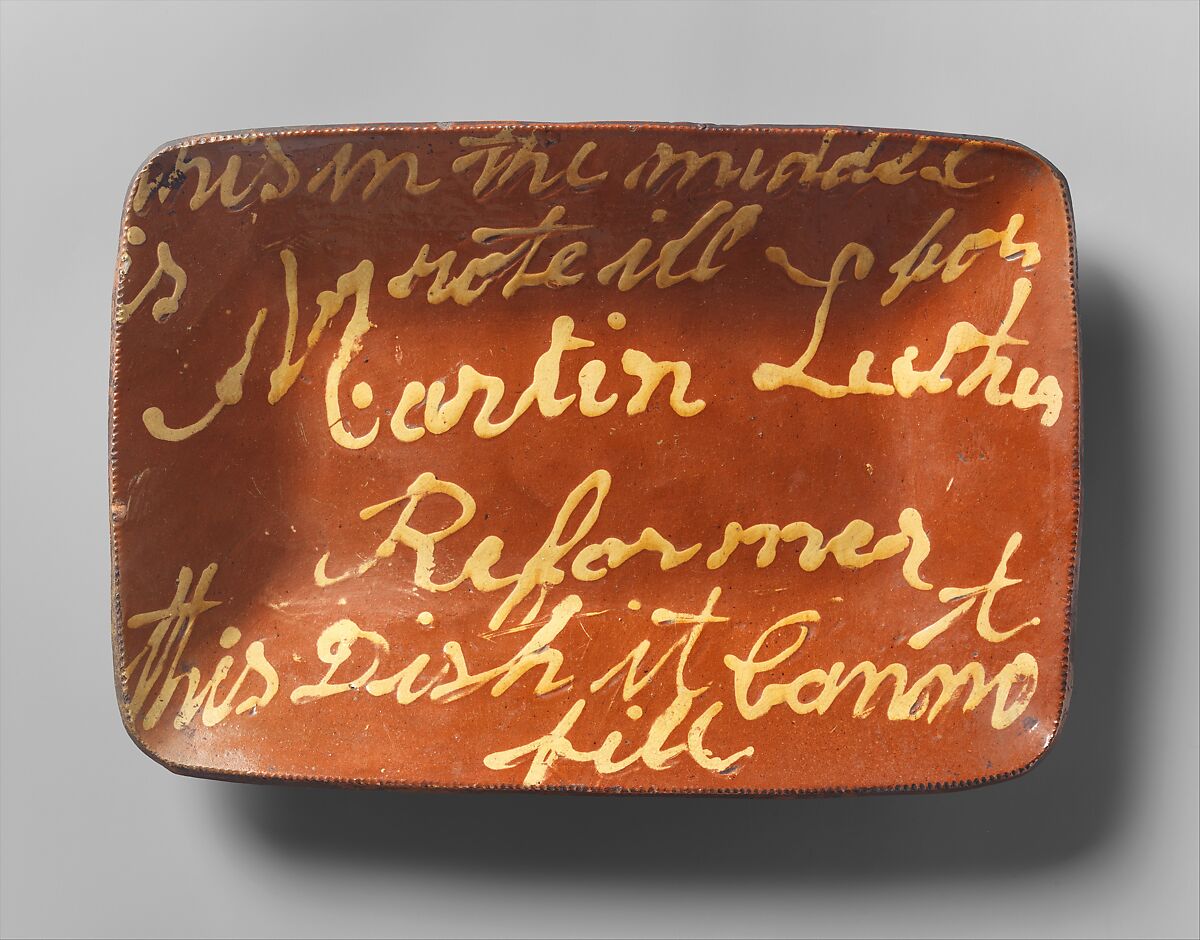 this in the middel
is rote ill
Martin Luther
Reformer
this Dish it Canno t
fill